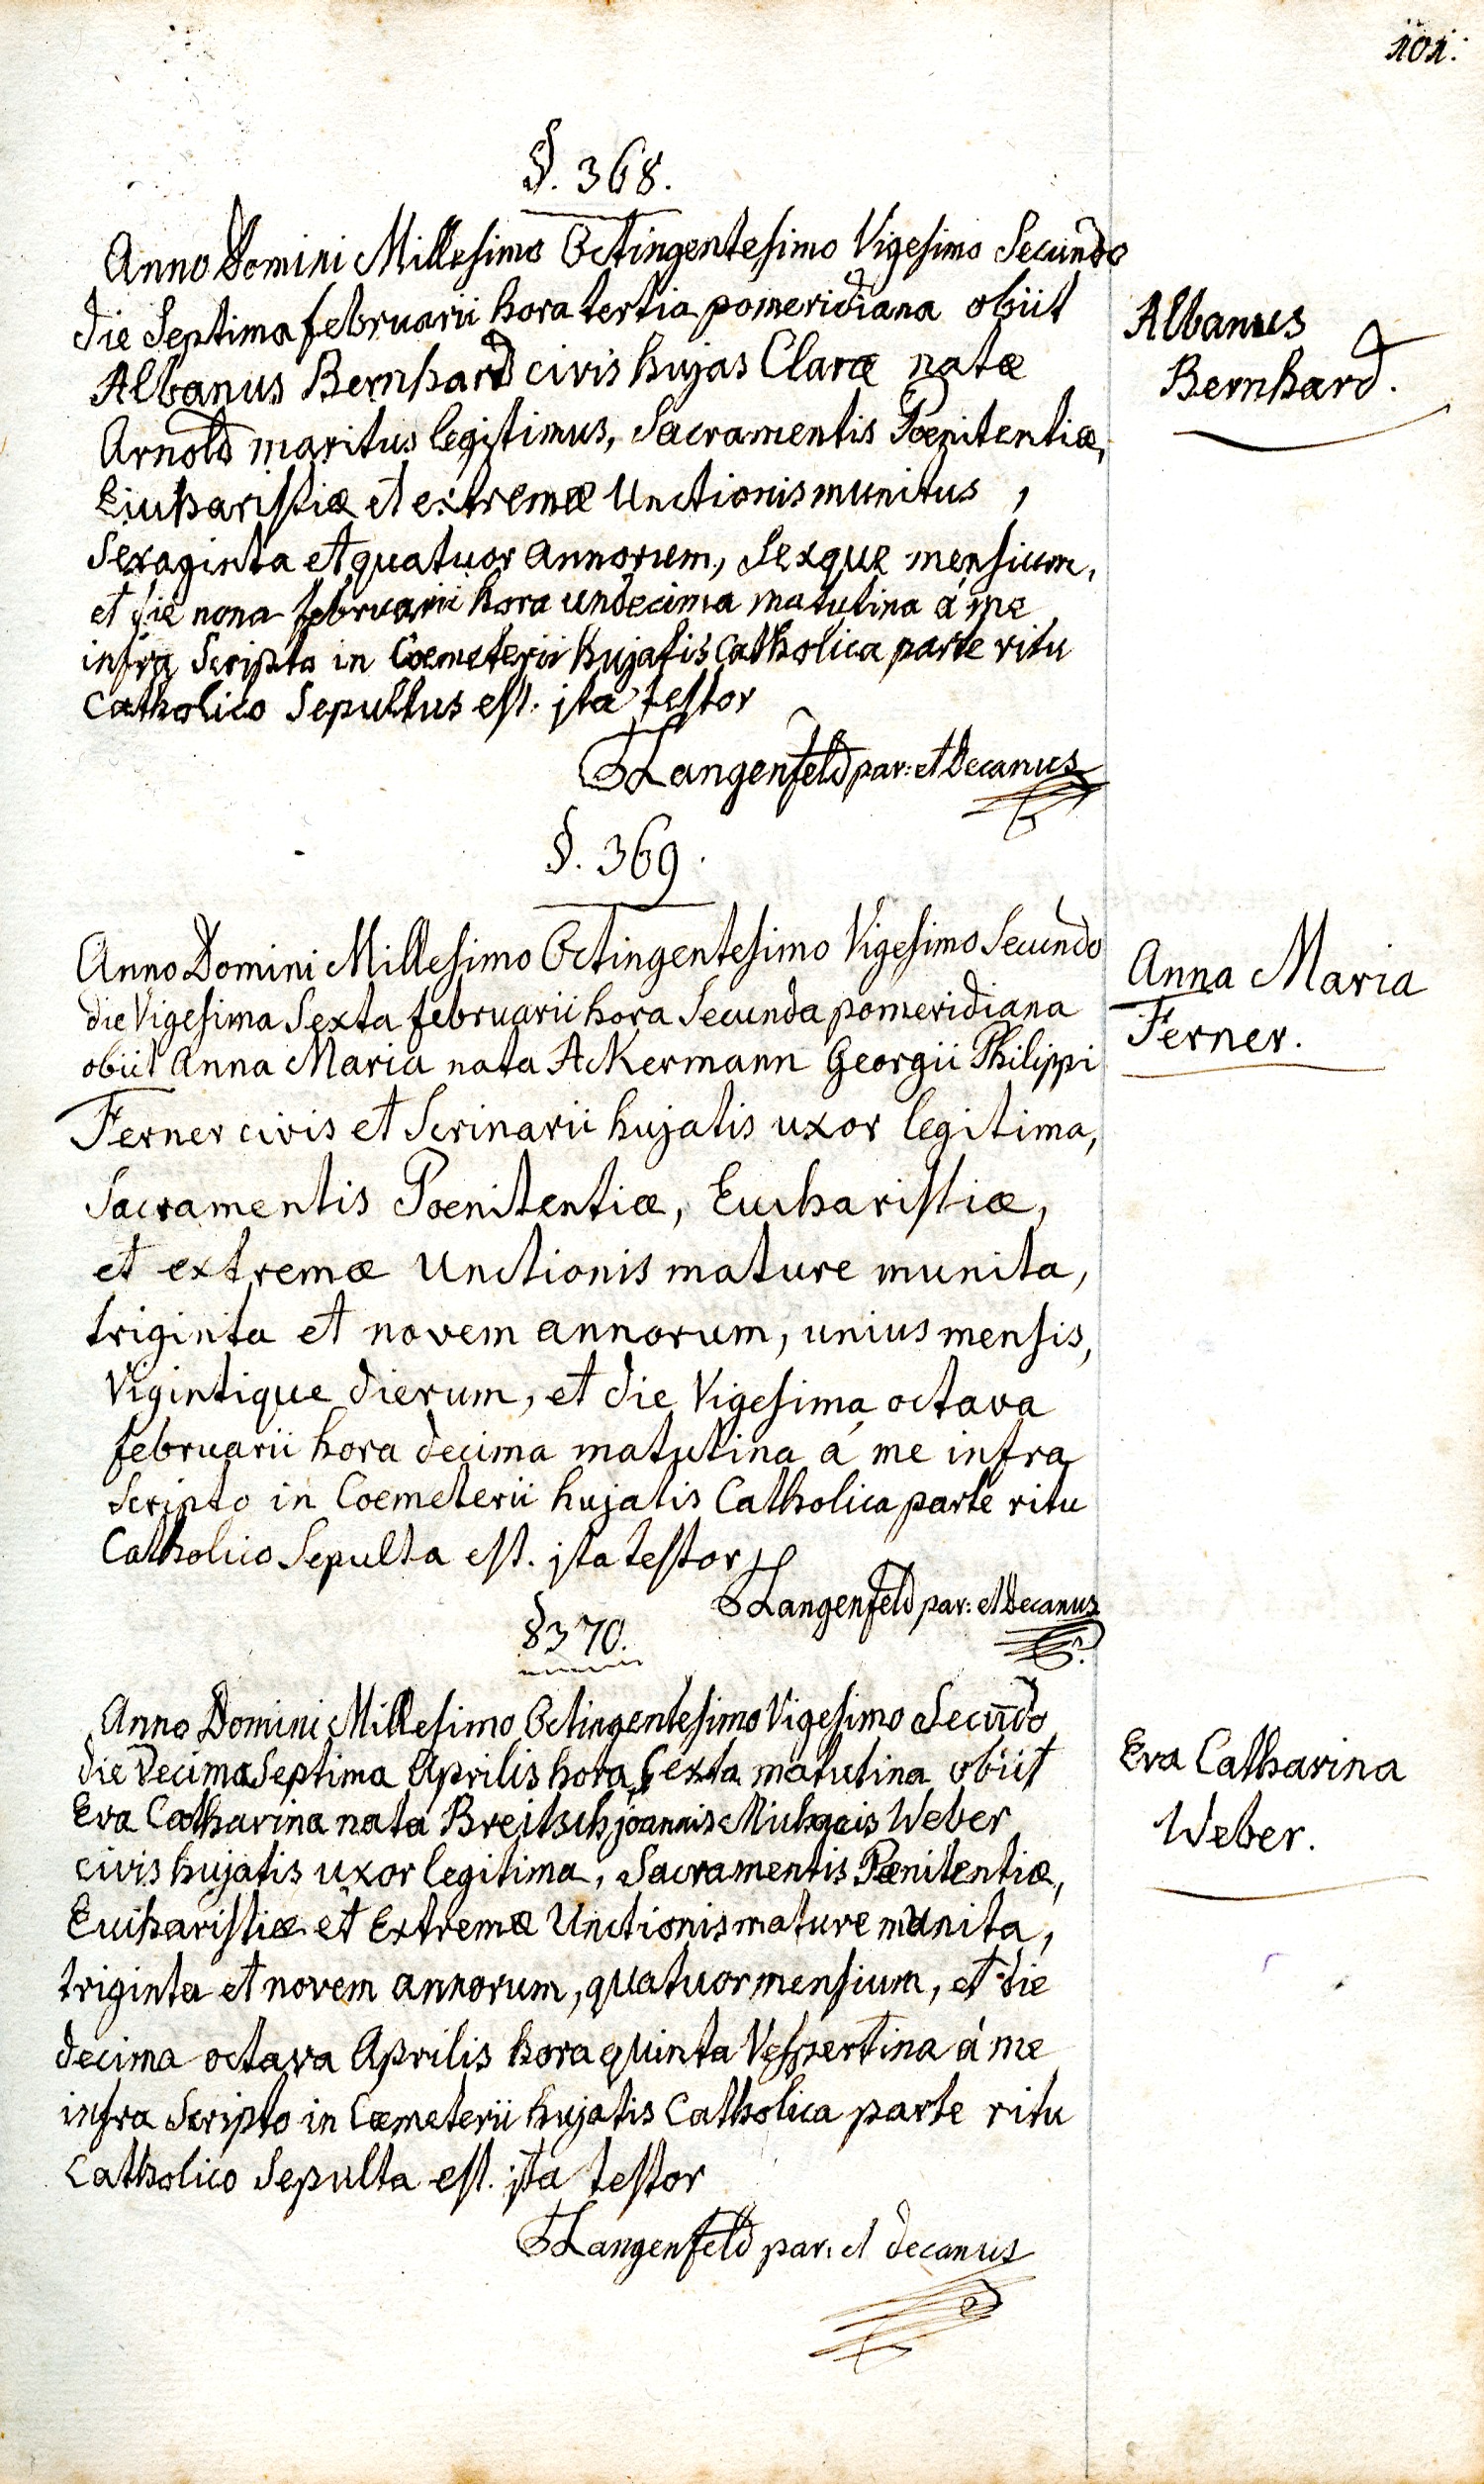 101.
§. 368.
Anno Domini Millesimo Octingentesimo Vigesimo Secundo
die Septima februarii hora tertia pomeridiana obiit
Albanus Bernhard civis hujas Claræ natæ
Arnold maritus legitimus, Sacramentis Poenitentiæ,
Eiuharistiæ et extremæ Unctionis munitus,
Sexaginta et quatuor annorum, Sexque mensium,
et die nona februarii hora undecima matutina á me
infra Scripto in Coemeterii hujatis Catholica parte ritu
Catholico Sepultus est. jta testor
Langenfeld par: et Decanus
Albanus
Bernhard.
§. 369.
Anno Domini Millesimo Octingentesimo Vigesimo Secundo
die Vigesima Sexta februarii hora Secunda pomeridiana
obiit Anna Maria nata Ackermann Georgii Philippi
Ferner civis et Scrinarii hujatis uxor legitima,
Sacramentis Poenitentiæ, Eucharistiæ,
et extremæ Unctionis mature munita,
triginta et novem annorum, unius mensis,
Vigintique dierum, et die Vigesima octava
februarii hora decima matutina á me infra
Scripto in Coemeterii hujatis Catholica parte ritu
Catholico Sepulta est. jta testor
Langenfeld par: et Decanus
Anna Maria
Ferner.
§370.
Anno Domini Millesimo Octingentesimo Vigesimo Secundo
die Decima Septima Aprilis hora Sexta matutina obiit
Eva Catharina nata Breitsch joannis Michaelis Weber
civis hujatis uxor legitima, Sacramentis Pænitentiæ,
Eucharistiæ et Extremæ Unctionis mature munita,
triginta et novem annorum, quatuor mensium, et die
decima octava Aprilis hora quinta Vespertina á me
infra Scripto in Cæmeterii hujatis Catholica parte ritu
Catholico Sepulta est. jta testor
Langenfeld par: et decanus
Eva Catharina
Weber.